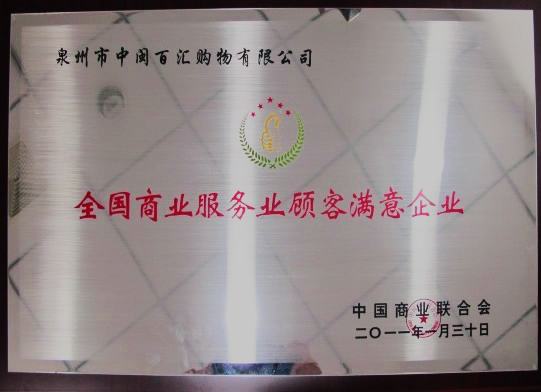 泉州市中闽百汇购物有限公司
全国商业服务业顾客满意企业
中国商业联合会
二〇一一年一月三十日